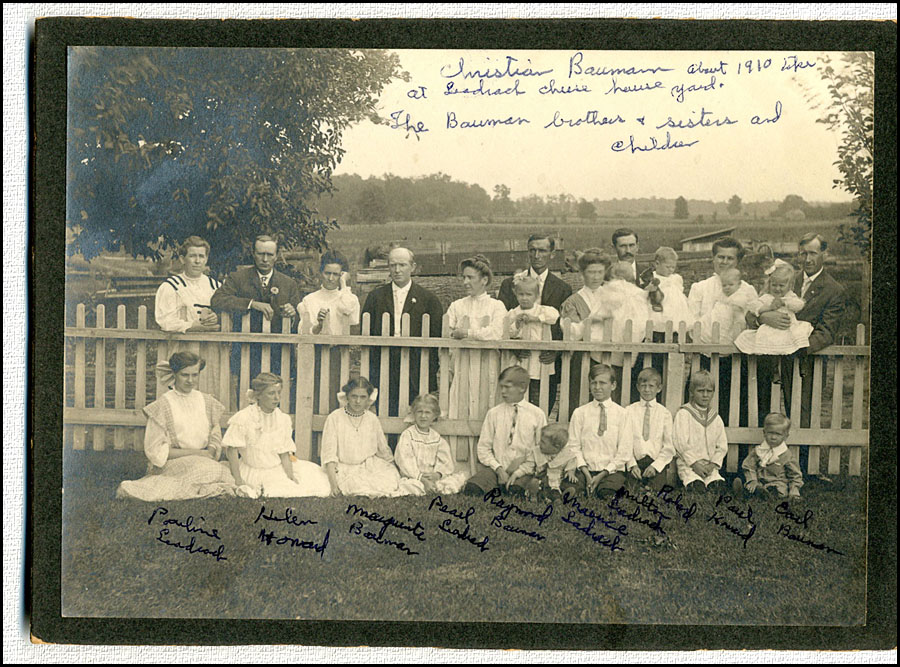 Christian Baumann about 1910
at Leadrach cheese house yard.
The Bauman brothers & sisters and
Children
Pauline
Leadrach
Helen
Howard
Marguerite
Bauman
Pearl
Raymond
Bauman
Maurice
Leadrach
Milton
Leadrach
Paul
Howard
Carl
Bauman